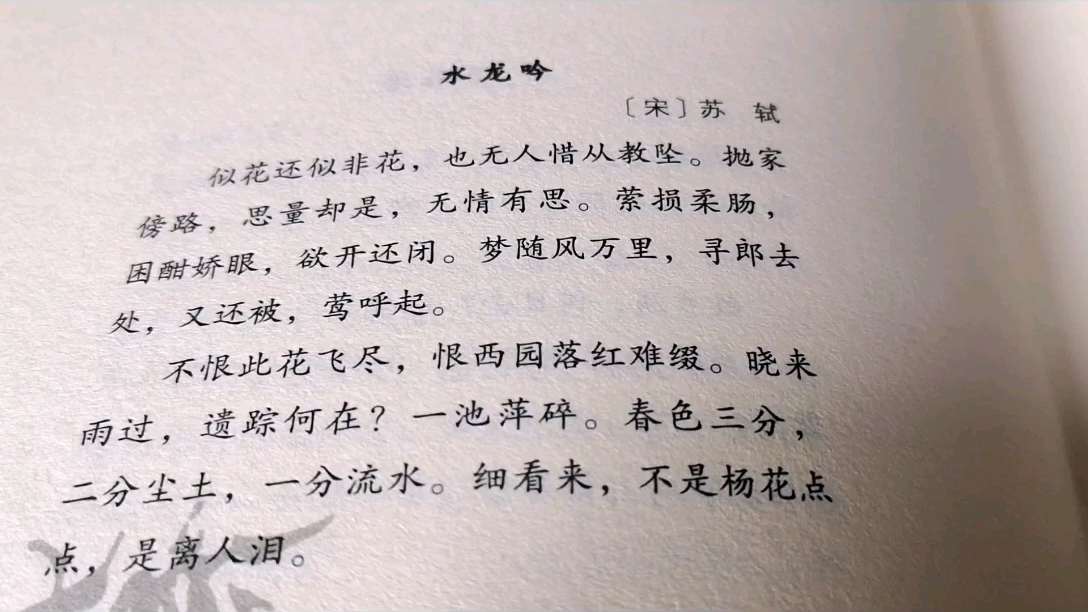 水龙吟
〔宋〕苏 轼
似花还似非花，也无人惜从教坠。抛家
傍路，思量却是，无情有思。萦损柔肠，
困酣娇眼，欲开还闭。梦随风万里，寻郎去
处，又还被，莺呼起。
不恨此花飞尽，恨西园落红难缀。晓来
雨过，遗踪何在？一池萍碎。春色三分，
二分尘土，一分流水。细看来，不是杨花点
点，是离人泪。